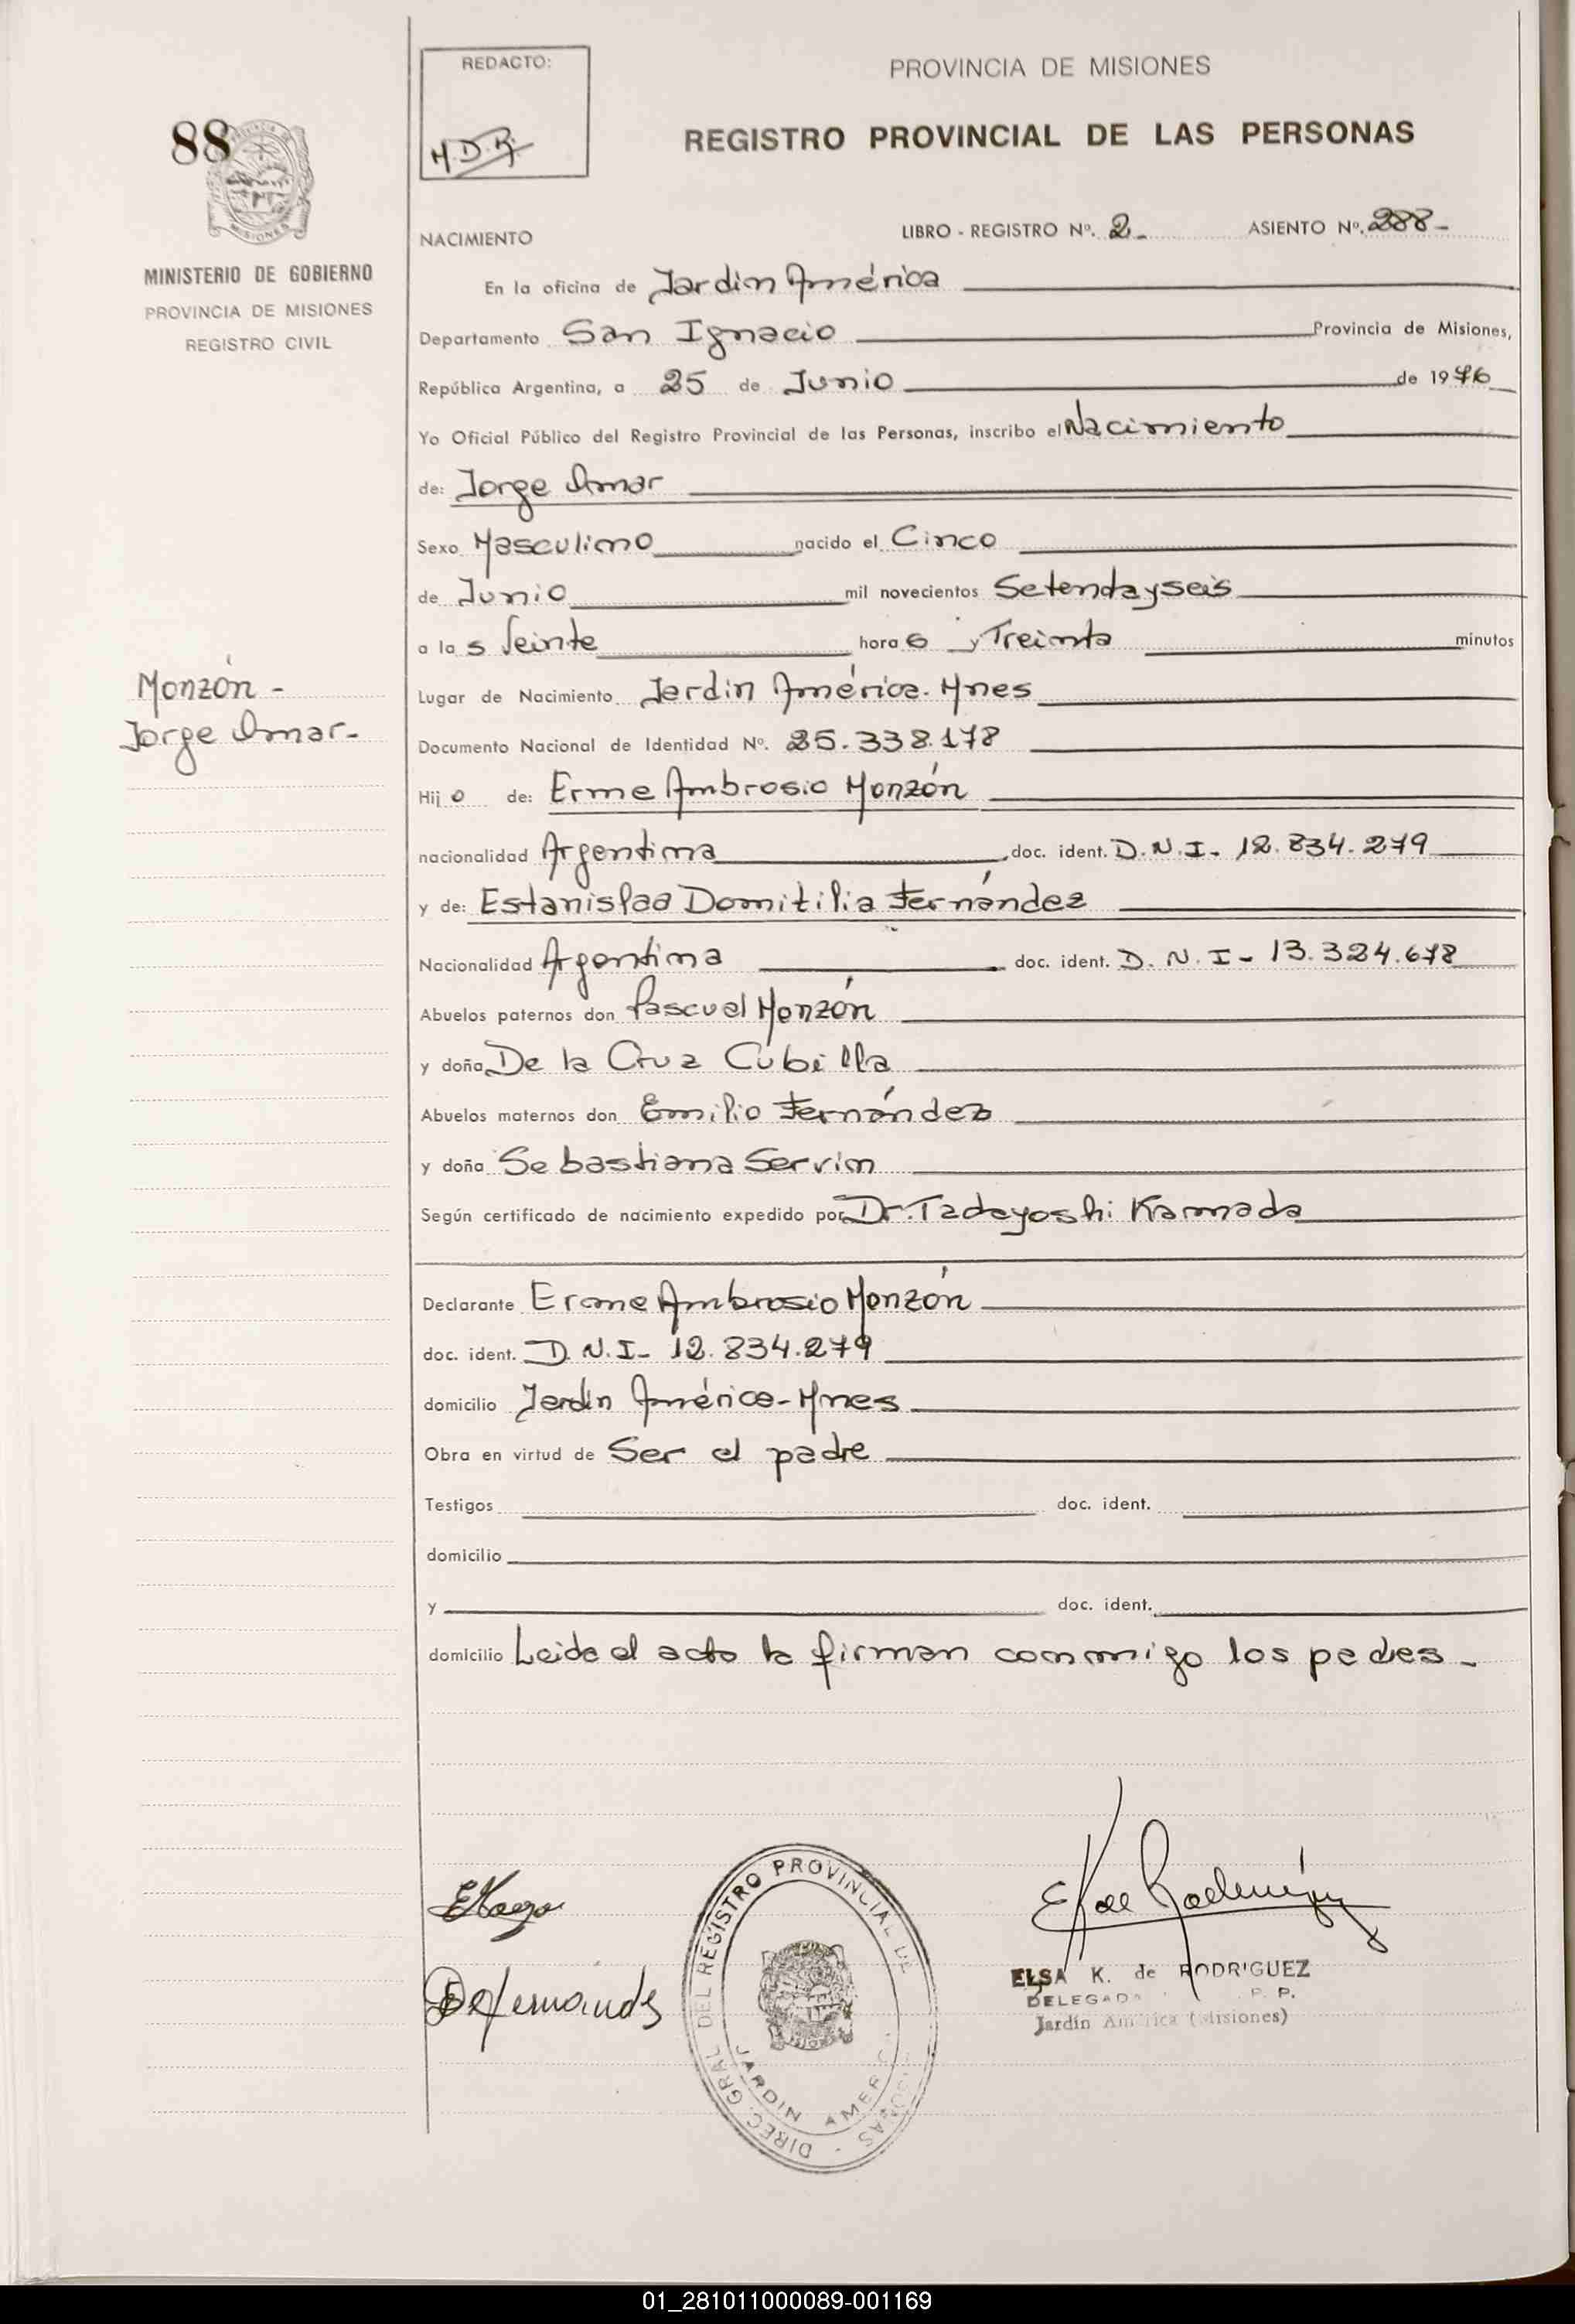 REDACTO:
H.D.R.
PROVINCIA DE MISIONES
88
REGISTRO PROVINCIAL DE LAS PERSONAS
MINISTERIO DE GOBIERNO
PROVINCIA DE MISIONES
REGISTRO CIVIL
NACIMIENTO
LIBRO - REGISTRO Nº. 2 - ASIENTO Nº. 288 -
En la oficina de Jardin América
Departamento San Ignacio Provincia de Misiones,
República Argentina, a 25 de Junio de 1976
Yo Oficial Público del Registro Provincial de las Personas, inscribo el Nacimiento
de: Jorge Omar
Sexo Masculino nacido el Cinco
de Junio mil novecientos Setenta y seis
a las Veinte horas y Treinta minutos
Monzón -
Jorge Omar -
Lugar de Nacimiento Jardin América - Mnes
Documento Nacional de Identidad Nº. 25.338.178
Hijo de: Erme Ambrosio Monzón
nacionalidad Argentina doc. ident. D.N.I - 12.834.279
y de: Estanislaa Domitilia Fernández
Nacionalidad Argentina doc. ident. D.N.I - 13.324.678
Abuelos paternos don Pascual Monzón
y doña De la Cruz Cubilla
Abuelos maternos don Emilio Fernández
y doña Sebastiana Servin
Según certificado de nacimiento expedido por Dr. Tadayoshi Kamada
Declarante Erme Ambrosio Monzón
doc. ident. D.N.I - 12.834.279
domicilio Jardin América - Mnes
Obra en virtud de Ser el padre
Testigos doc. ident.
domicilio
y doc. ident.
domicilio Leida el acto la firman conmigo los padres -
DIREC. GRAL. DEL REGISTRO PROVINCIAL DE
JARDIN AMERICA
ELSA K. de RODRIGUEZ
Jardín América (Misiones)
01_281011000089-001169